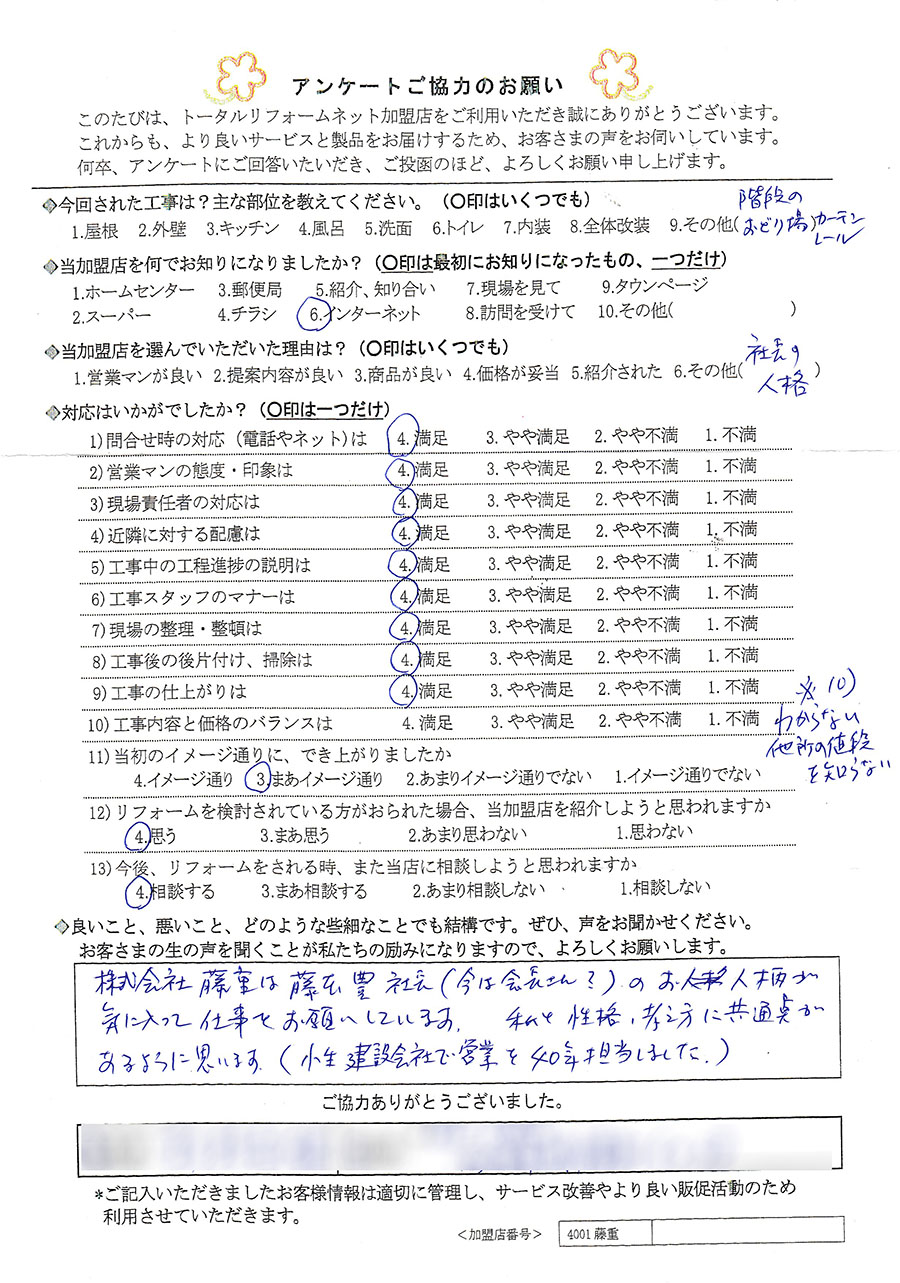 アンケートご協力のお願い
このたびは、トータルリフォームネット加盟店をご利用いただき誠にありがとうございます。
これからも、より良いサービスと製品をお届けするため、お客さまの声をお伺いしています。
何卒、アンケートにご回答いただき、ご投函のほど、よろしくお願い申し上げます。
◈今回された工事は？主な部位を教えてください。（〇印はいくつでも）
1.屋根 2.外壁 3.キッチン 4.風呂 5.洗面 6.トイレ 7.内装 8.全体改装 9.その他(階段のおどり場)カーテンレール
◈当加盟店を何でお知りになりましたか？（〇印は最初にお知りになったもの、一つだけ）
1.ホームセンター 3.郵便局 5.紹介、知り合い 7.現場を見て 9.タウンページ
2.スーパー 4.チラシ 6.インターネット 8.訪問を受けて 10.その他( )
◈当加盟店を選んでいただいた理由は？（〇印はいくつでも）
1.営業マンが良い 2.提案内容が良い 3.商品が良い 4.価格が妥当 5.紹介された 6.その他(社長の人格)
◈対応はいかがでしたか？（〇印は一つだけ）
1)問合せ時の対応（電話やネット)は 4.満足 3.やや満足 2.やや不満 1.不満
2)営業マンの態度・印象は 4.満足 3.やや満足 2.やや不満 1.不満
3)現場責任者の対応は 4.満足 3.やや満足 2.やや不満 1.不満
4)近隣に対する配慮は 4.満足 3.やや満足 2.やや不満 1.不満
5)工事中の工程進捗の説明は 4.満足 3.やや満足 2.やや不満 1.不満
6)工事スタッフのマナーは 4.満足 3.やや満足 2.やや不満 1.不満
7)現場の整理・整頓は 4.満足 3.やや満足 2.やや不満 1.不満
8)工事後の後片付け、掃除は 4.満足 3.やや満足 2.やや不満 1.不満
9)工事の仕上がりは 4.満足 3.やや満足 2.やや不満 1.不満
10)工事内容と価格のバランスは 4.満足 3.やや満足 2.やや不満 1.不満
※10)
わからない
他所の値段
を知らない
11)当初のイメージ通りに、でき上がりましたか
4.イメージ通り 3.まあイメージ通り 2.あまりイメージ通りでない 1.イメージ通りでない
12)リフォームを検討されている方がおられた場合、当加盟店を紹介しようと思われますか
4.思う 3.まあ思う 2.あまり思わない 1.思わない
13)今後、リフォームをされる時、また当店に相談しようと思われますか
4.相談する 3.まあ相談する 2.あまり相談しない 1.相談しない
◈良いこと、悪いこと、どのような些細なことでも結構です。ぜひ、声をお聞かせください。
お客さまの生の声を聞くことが私たちの励みになりますので、よろしくお願いします。
株式会社藤重は藤本豊社長(今は会長さん？)のお人柄が
気に入って仕事をお願いしています。 私と性格、考え方に共通点が
あるように思います。(小生建設会社で営業を40年担当しました.)
ご協力ありがとうございました。
*ご記入いただきましたお客様情報は適切に管理し、サービス改善やより良い販促活動のため
利用させていただきます。
<加盟店番号> 4001 藤重